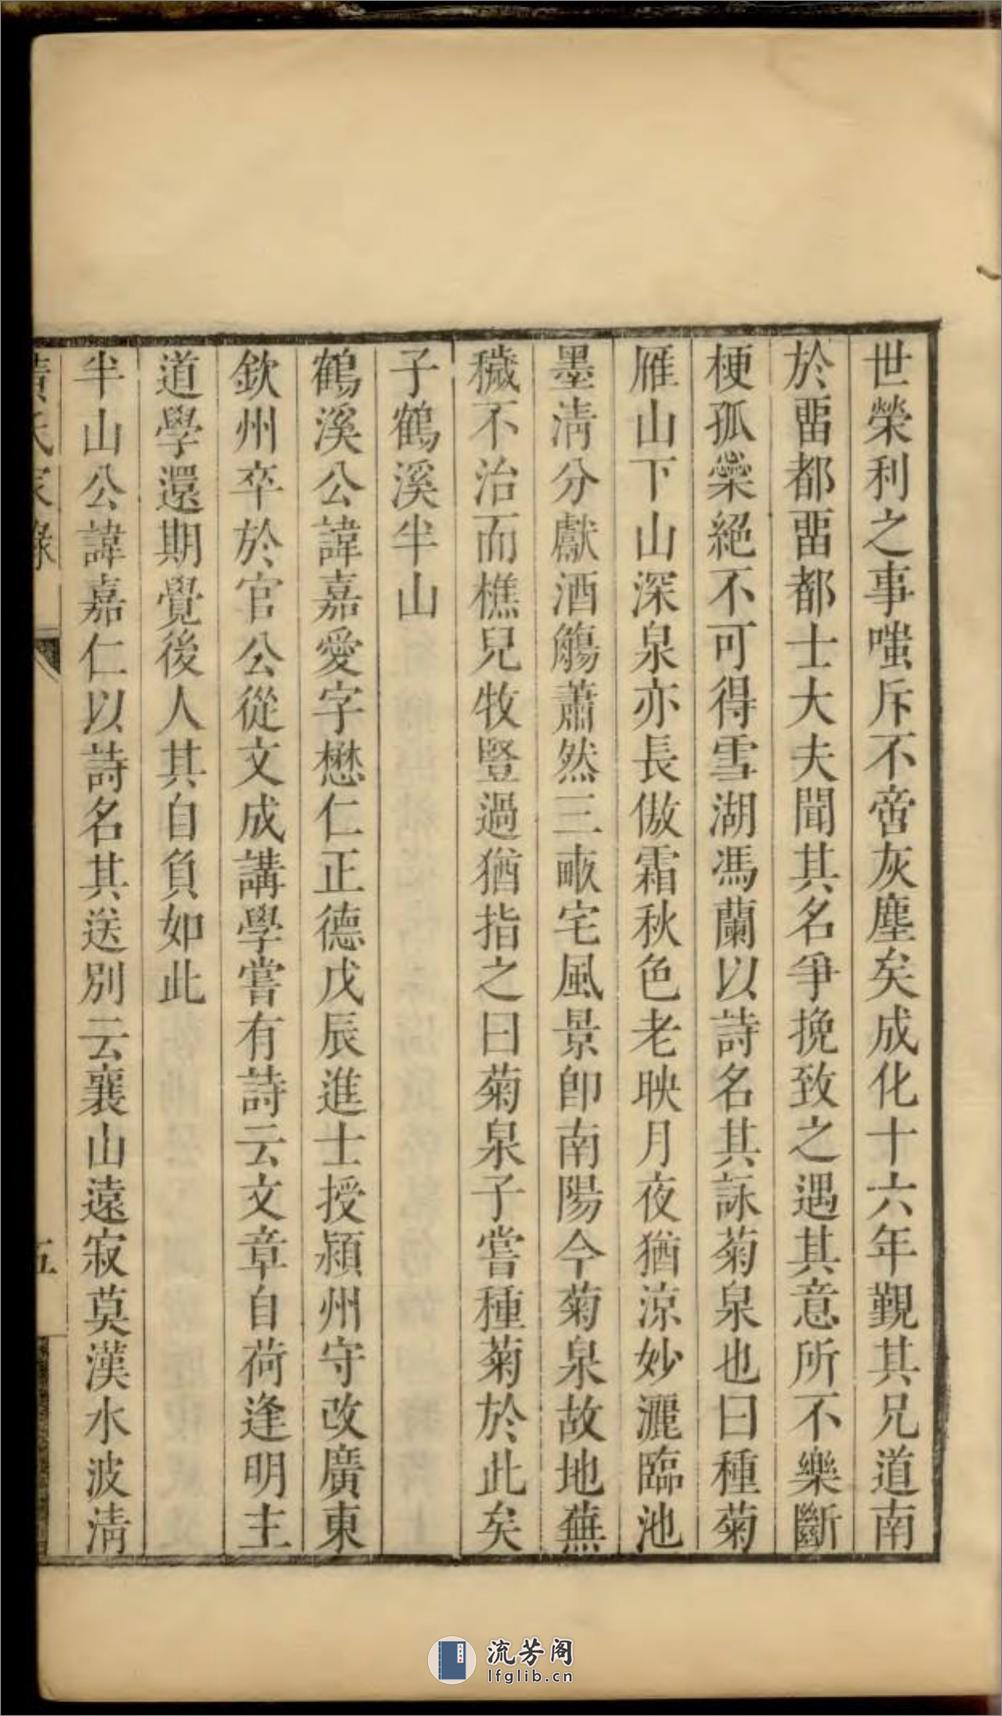 世榮利之事嗤斥不啻灰塵矣成化十六年覲其兄道南
於畱都畱都士大夫聞其名爭挽致之遇其意所不樂斷
梗孤蘖絕不可得雪湖馮蘭以詩名其詠菊泉也曰種菊
雁山下山深泉亦長傲霜秋色老映月夜猶涼妙灑臨池
墨淸分獻酒觴蕭然三畝宅風景卽南陽今菊泉故地蕪
穢不治而樵兒牧豎過猶指之曰菊泉子嘗種菊於此矣
子鶴溪半山
鶴溪公諱嘉愛字懋仁正德戊辰進士授潁州守改廣東
欽州卒於官公從文成講學嘗有詩云文章自荷逢明主
道學還期覺後人其自負如此
半山公諱嘉仁以詩名其送別云襄山遠寂莫漢水波淸
氏家錄
五
流芳阁
lfglib.cn